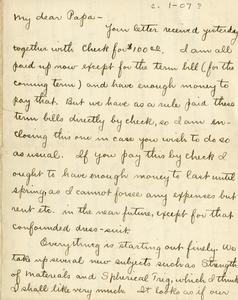 2-1-07?
My dear Papa-
Your letter received yesterday
together with check for $100 00/xx. I am all
paid up now except for the term bill (for the
coming term) and have enough money to
pay that. But we as a rule paid these
term bills directly by check, so I am en-
closing this one in case you wish to do so
as usual. If you pay this by check I
ought to have enough money to last until
spring as I cannot forsee any expenses but
rent etc. in the near future, except for that
confounded dress-suit.
Everything is starting out finely. We
take up several new subjects such as Strength
of materials and Spherical Trig, which I think
I shall like very much. It looks as if our